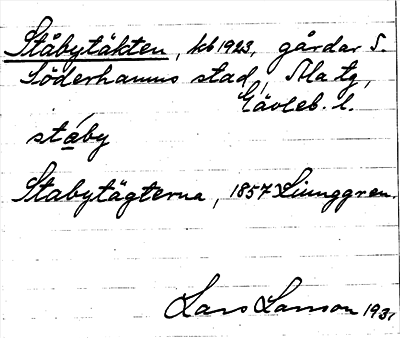 Ståbytäkten, kb 1923, gårdar S.
Söderhamns stad, Ala tg,
Gävleb. l.
ståby
Stabytägterna, 1857 Ljunggren.
Lars Larsson 1931